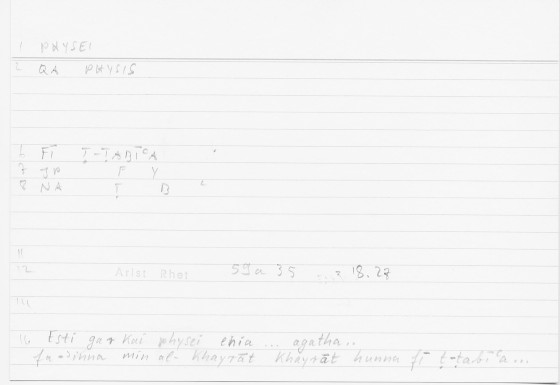 1 PHYSEI
2 QA PHYSIS
6 FĪ Ṭ-ṬABĪʿA
7 JR F Y
8 NA Ṭ B ʿ
11
12 Arist Rhet 59a 35 18.27
14
15 Esti gar kai physei enia ... agatha..
fa-ʾinna min al-khayrāt khayrāt hunna fī ṭ-ṭabīʿa ...